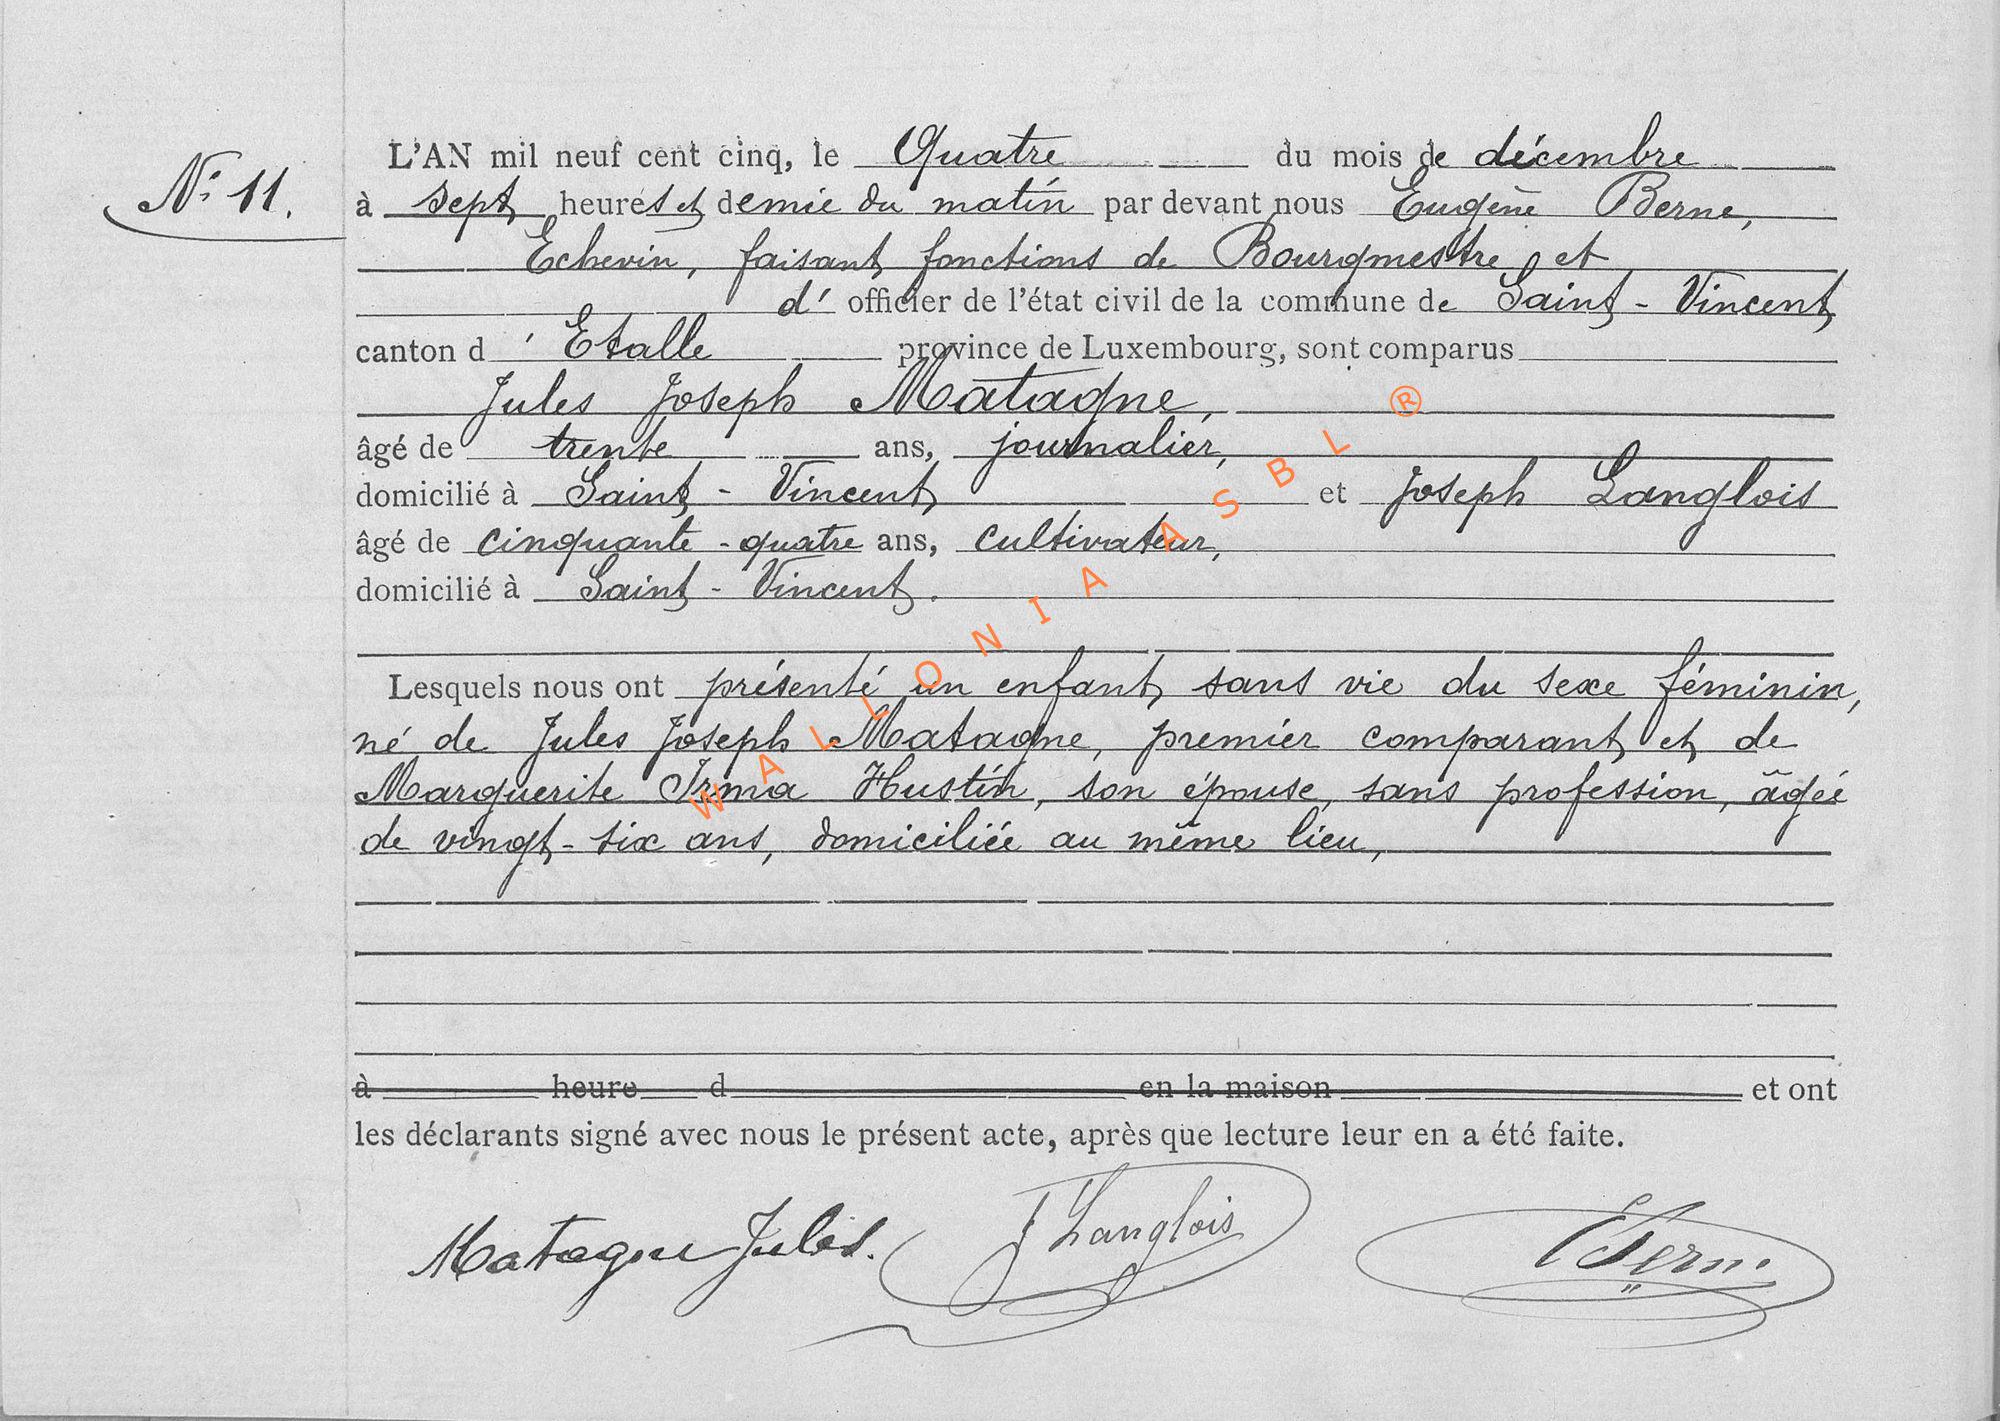 N° 11.
L'AN mil neuf cent cinq, le Quatre du mois de décembre
à sept heures et demie du matin par devant nous Eugène Berne,
Echevin, faisant fonctions de Bourgmestre et
d' officier de l'état civil de la commune de Saint-Vincent
canton d'Etalle province de Luxembourg, sont comparus
Jules Joseph Matagne,
âgé de trente ans, journalier,
domicilié à Saint-Vincent et Joseph Langlois
âgé de cinquante-quatre ans, cultivateur,
domicilié à Saint-Vincent.
Lesquels nous ont présenté un enfant sans vie du sexe féminin,
né de Jules Joseph Matagne, premier comparant et de
Marguerite Irma Hustin, son épouse, sans profession, âgée
de vingt-six ans, domiciliée au même lieu,
à heure d en la maison et ont
les déclarants signé avec nous le présent acte, après que lecture leur en a été faite.
Matagne Jules. J Langlois E Berne
WALLONIA ASBL ®